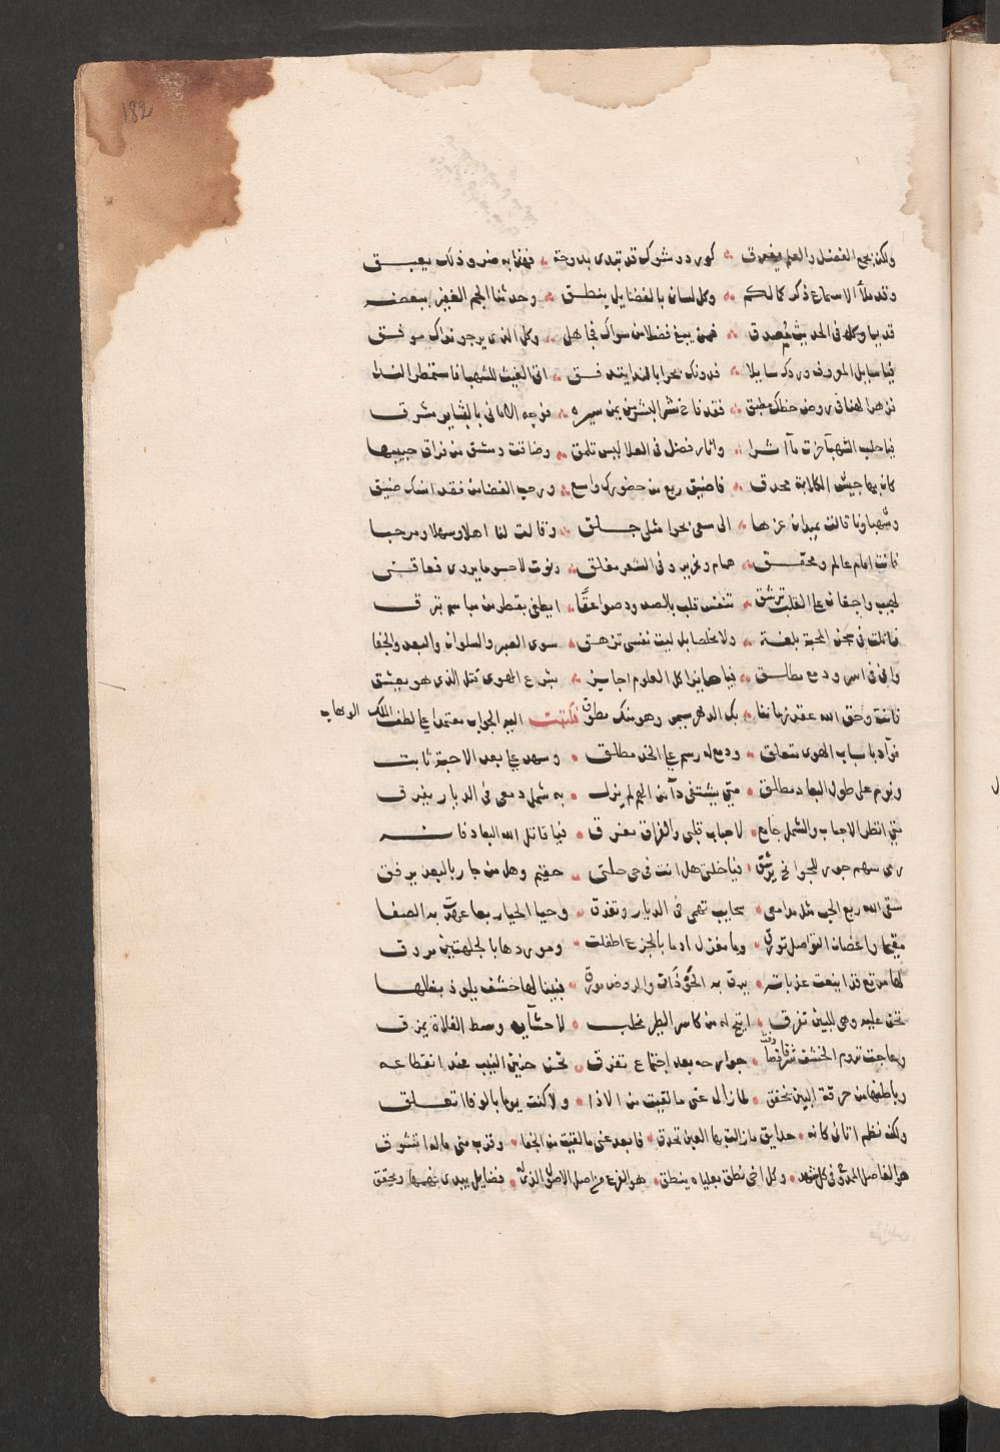 182
ولكن بجمع الفضل والعلم يغدق ؞ كورد وشوك قد تبدى بدوحة ؞ فهذا به ضر وذلك يعبق
وقد ملأ الاسماع ذكر كمالكم ؞ وكل لسان بالفضايل ينطق ؞ وحدثنا الجم الغفير ببعضه
قديما وكل في الحديث مُصدق ؞ فمن يبغ فضلا من سواك فجاهل ؞ وكل الذي يرجو نداك موفق
فيا سايل المعروف ورْدك سايلا ؞ فدونك بحرا بالندا يتدفق ؞ اتى الغيث للشهبا فاستمطر الندا
فزهر الهنا في روض حظك مطبق ؞ فقد فاح نشر البشر من يمن سيره ؞ فوجه الاماني بالبشاير مشرق
فيا حلب الشهبآ حزت مآاثرا ؞ واثار فضل في العلا ليس تلحق ؞ وضاقت دمشق من فراق حبيبها
كان بها جيش الكآبة محدق ؞ فاضيق ربع من حضورك واسع ؞ ورحب الفضا من فقد انسك ضيق
وشهباونا قالت بميدان عزها ؞ الى سعى نحوا مثلى جلق ؞ وقالت لنا اهلا وسهلا ومرحبا
فانت امام عالم ومحقق ؞ همام وفريد وفي الشعر مفلق ؞
لهيب واجفان على القلب ترشق ؞ تنفس قلب بالصد ود صواعقًا ؞ ايطفى بقطر من مباسم تبرق
فاتلت في سجن المحبة بلغة ؞ ولا مخلصا بل ليت نفسي تزهق ؞ سوى الصبر والسلوان والبعد والجفا
واني في اسر ودمع مطلق ؞ فيا حايزا كل العلوم اجا بين ؞ بشرع الهوى قتل الذي هو يعشق
فانت وحق الله عقد زماننا ؞ بك الدهر يسمو وهو منك مطوق فكتبت اليه الجواب معتمدا على لطف الملك الوهاب
فوآد باسباب الهوى متعلق ؞ ودمع له رسم على الخد مطلق ؞ وسهد على بعد الاحبة ثابت
ونوم على طول البعاد مطلق ؞ متى يشتفى دآ من الهم لم يزل ؞ به شمل دمعي في الديار يفرق
متى انظر الاحباب والشمل جامع ؞ لاحباب قلبي والفراق مفرق ؞ فيا قاتل الله البعاد فانه
رمى سهم جور للجوانح يرشق ؞ فيا خلتى هل انت في حى حلتى ؞ مقيم وهل من جار بالبعد يرفق
سقى الله ربع الحب مثل مدامعي ؞ سحايب تهمى في الديار وتغدق ؞ وحيا الحيار بعا عهدتُ به الصفا
مقيما واغصان التواصل تورق ؞ وما مغزل ادما بالجزع اطفلت ؞ وموردها بالجلهتين مردق
لها مرتع قد اينعت عذباته ؞ يرق به الحوذان والروض مورق ؞ فبينا لها خشف يلوذ بظلها
تحن عليه وهى للبين تفرق ؞ اتيح له من كاسر الطير مخلب ؞ لاحشآيه وسط الفلاة يمزق
وعاجت تروم الخشف ؞ جوارحه بعد اجتماع تفرق ؞ تحن حنين النيب عند انقطاعه
وباطنها من حرقة البين يخفق ؞ لما زال عنى ما لقيت من الاذا ؞ ولا كنت يوما بالوفا اتعلق
ولكن نظم اتاني كانه ؞ حدايق مازالت بها العين تحدق ؞ فابعد عنى ما لقيت من الجفا ؞ وقرب منى ماله اتشوق
هو الفاضل المدعو في كل مشهد ؞ وكل اخى نطق بعلياه ينطق ؞ هو الفرع من اصل الاصول الذي له ؞ فضايل يبدي نهمها ومحقق